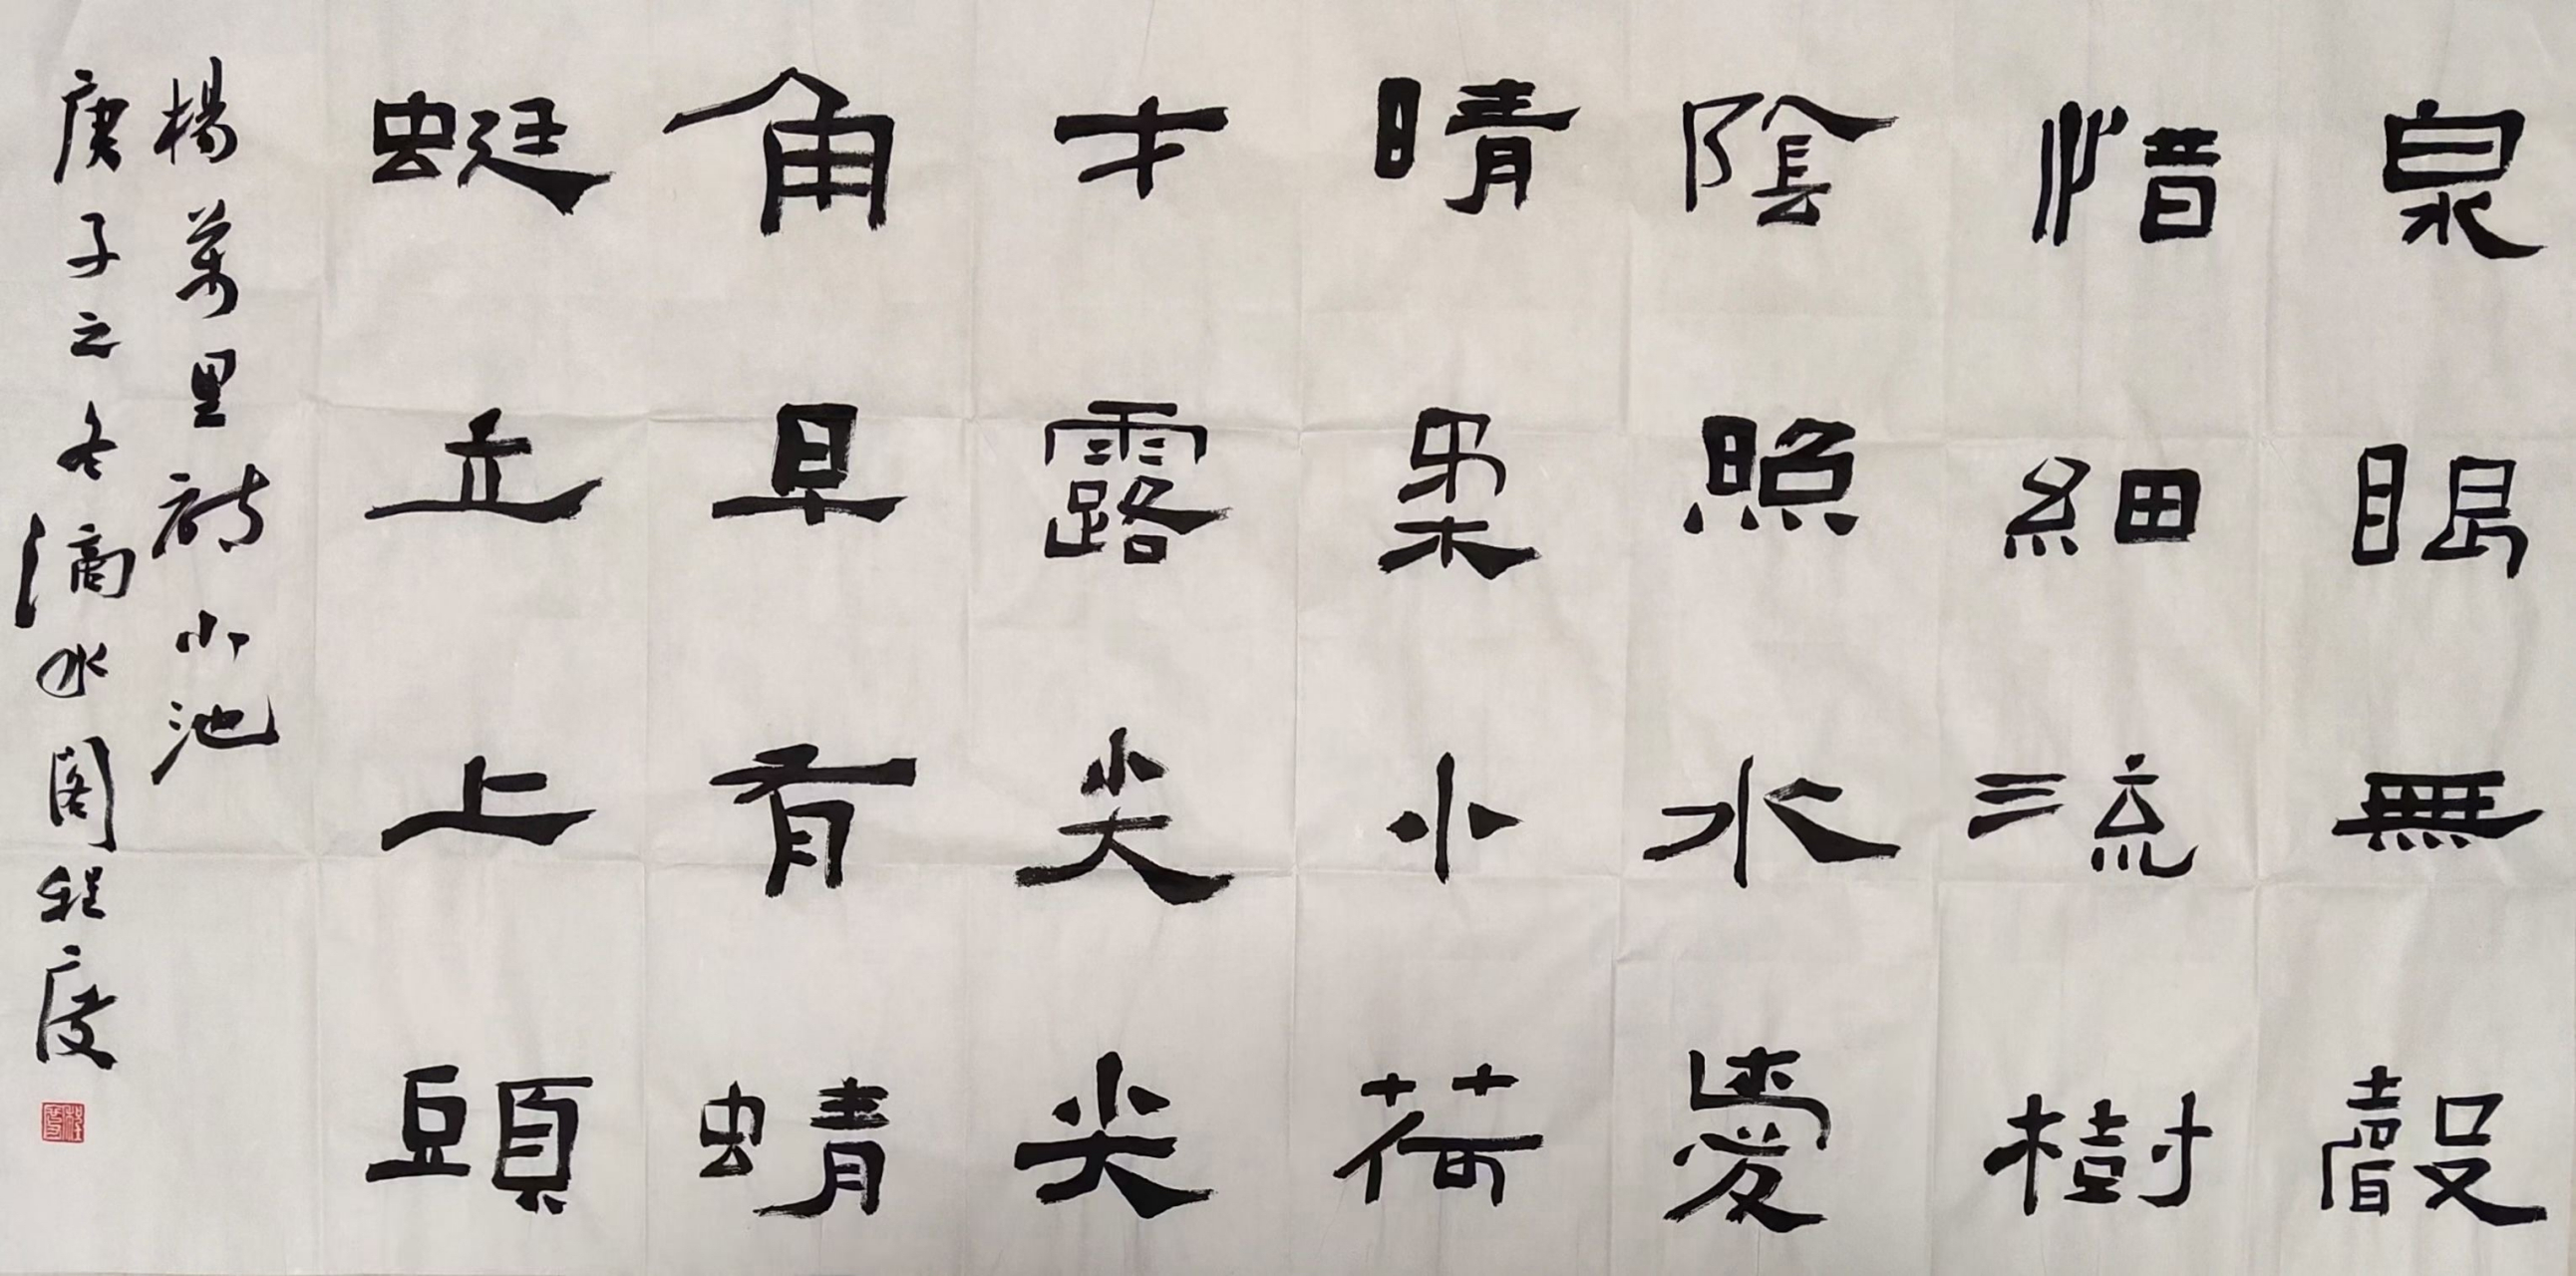 泉眼無聲
惜細流樹
陰照水愛
晴柔小荷
才露尖尖
角早有蜻
蜓立上頭
楊萬里詩小池
庚子之冬滴水閣程度